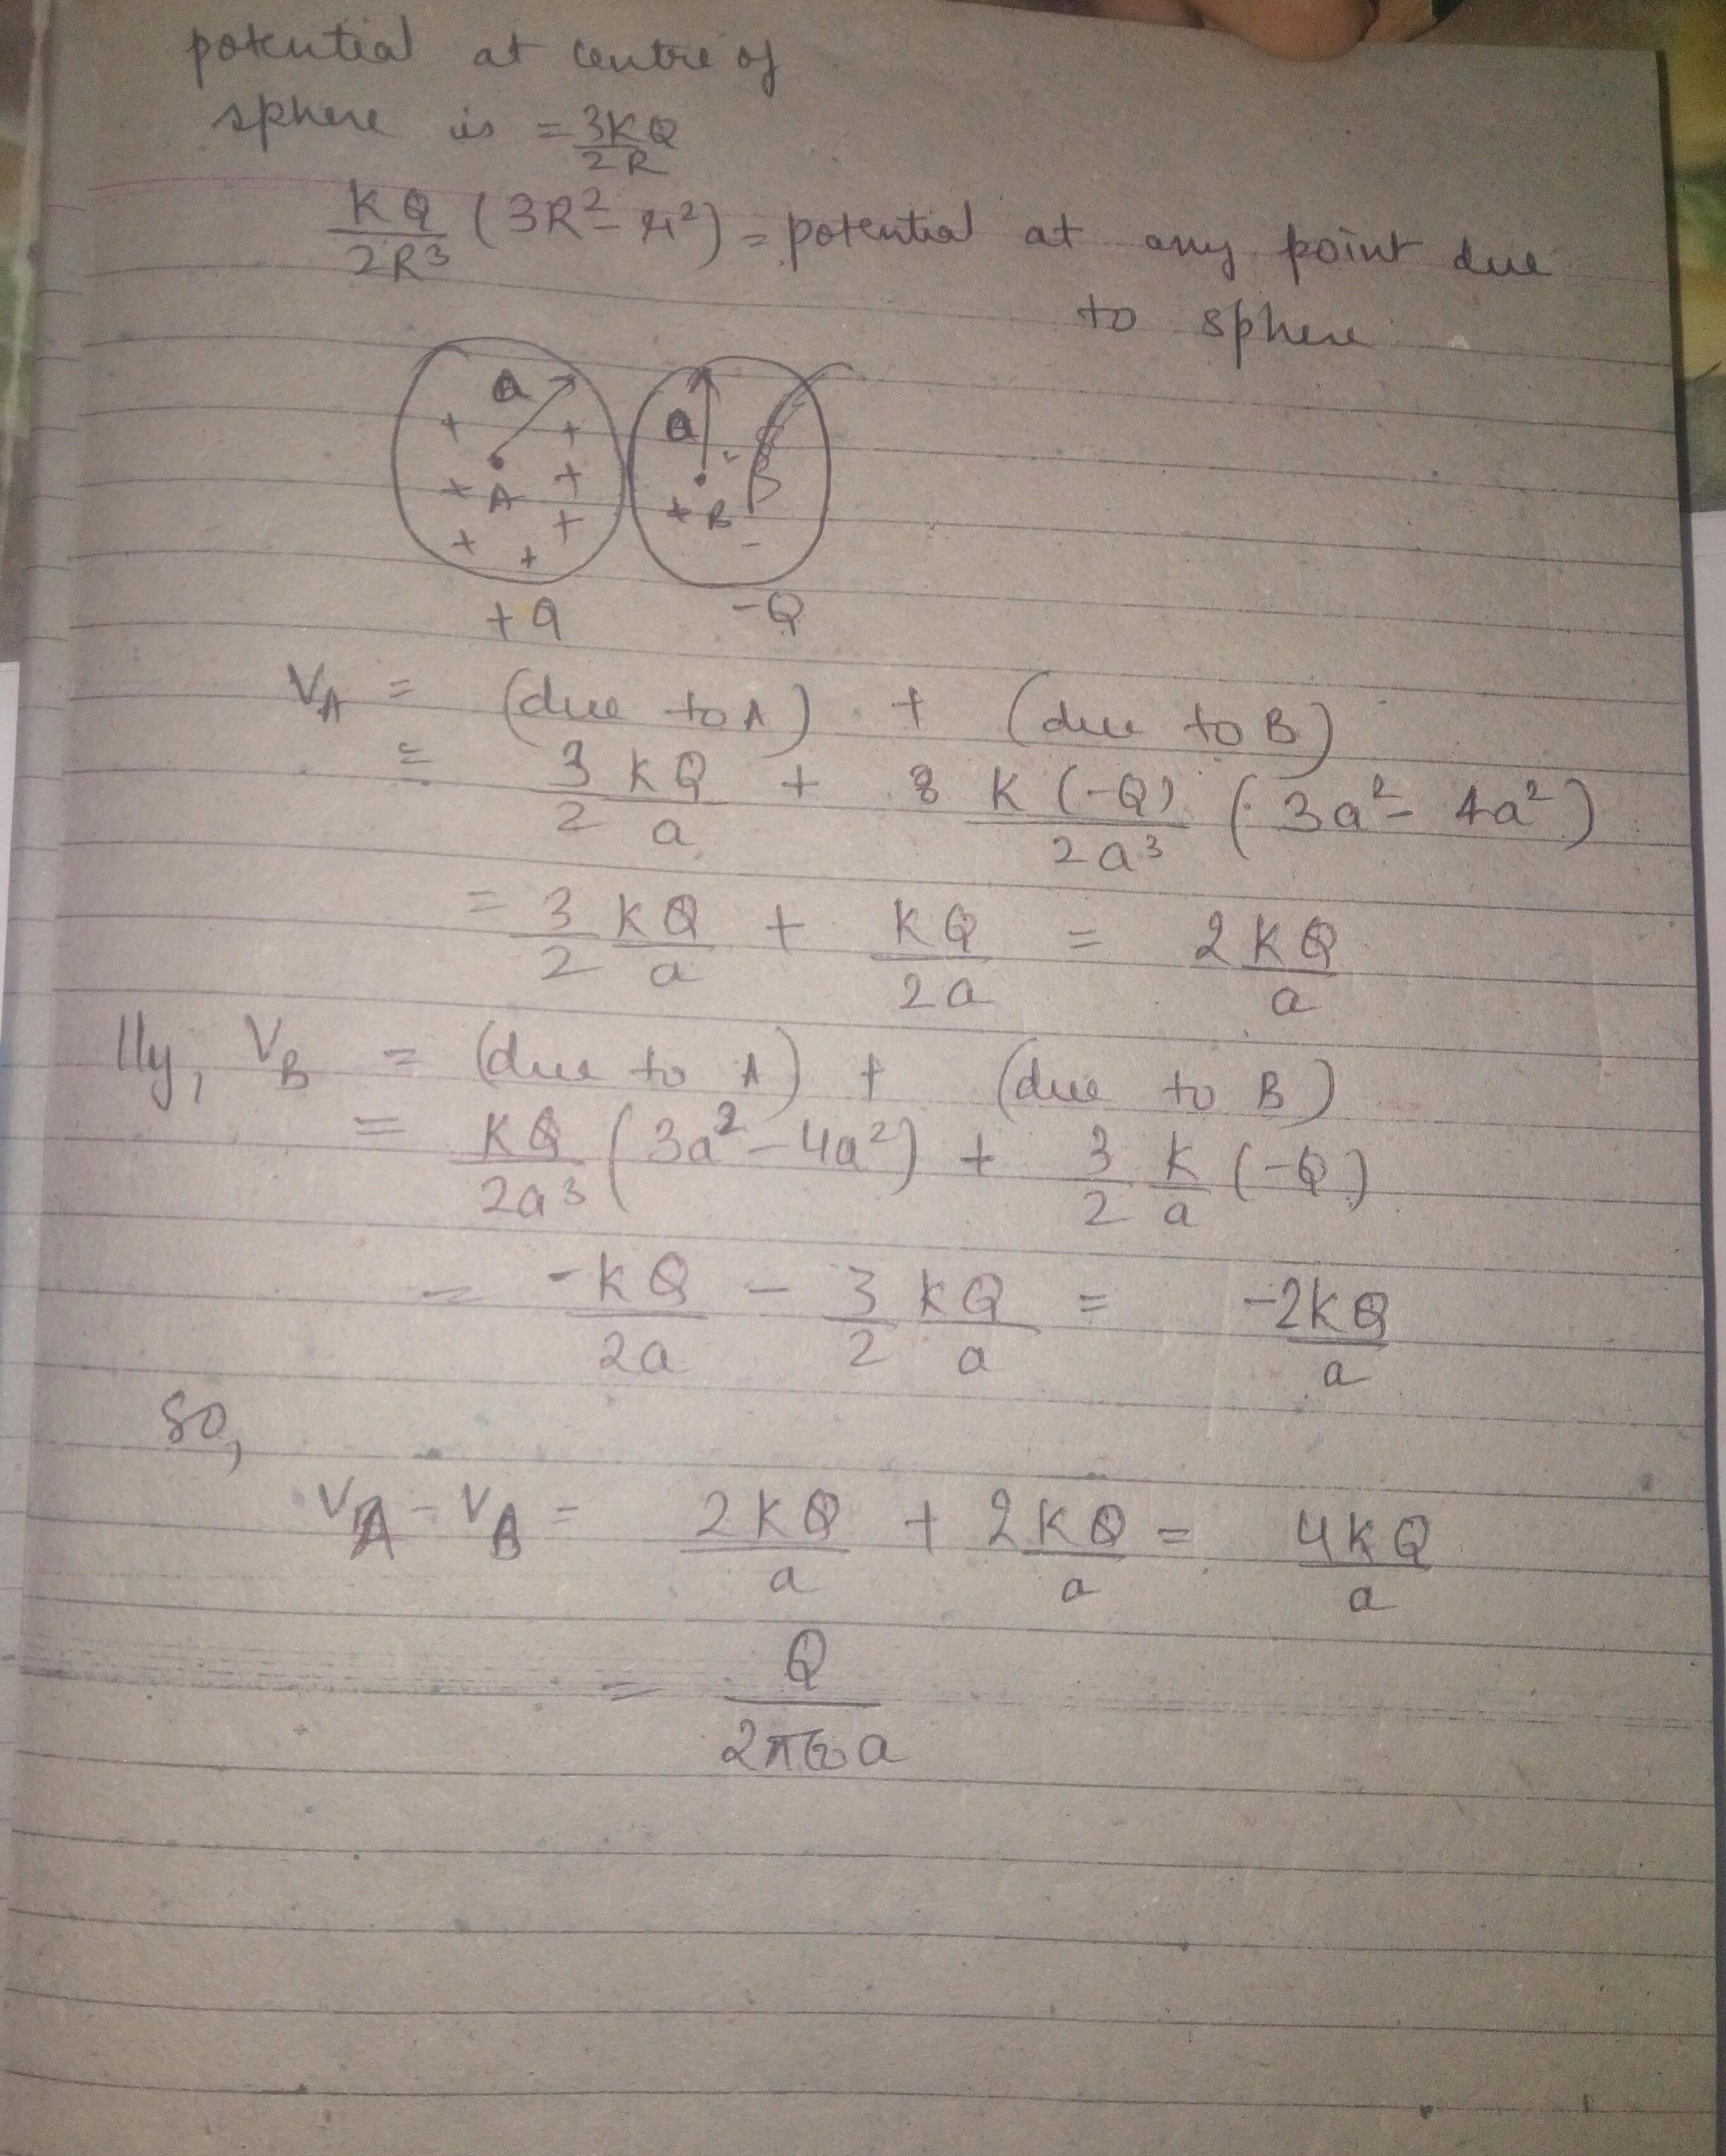 potential at centre of
sphere is = 3KQ/2R
KQ/2R³ (3R² - r²) = potential at any point due
to sphere
a a
+ +
+ A + + B
+ + + -
+q -Q
V_A = (due to A) + (due to B)
= 3/2 KQ/a + K(-Q)/2a³ (3a² - 4a²)
= 3/2 KQ/a + KQ/2a = 2KQ/a
lly, V_B = (due to A) + (due to B)
= KQ/2a³ (3a² - 4a²) + 3/2 K/a (-Q)
= -KQ/2a - 3/2 KQ/a = -2KQ/a
So,
V_A - V_B = 2KQ/a + 2KQ/a = 4KQ/a
= Q/2πε₀a